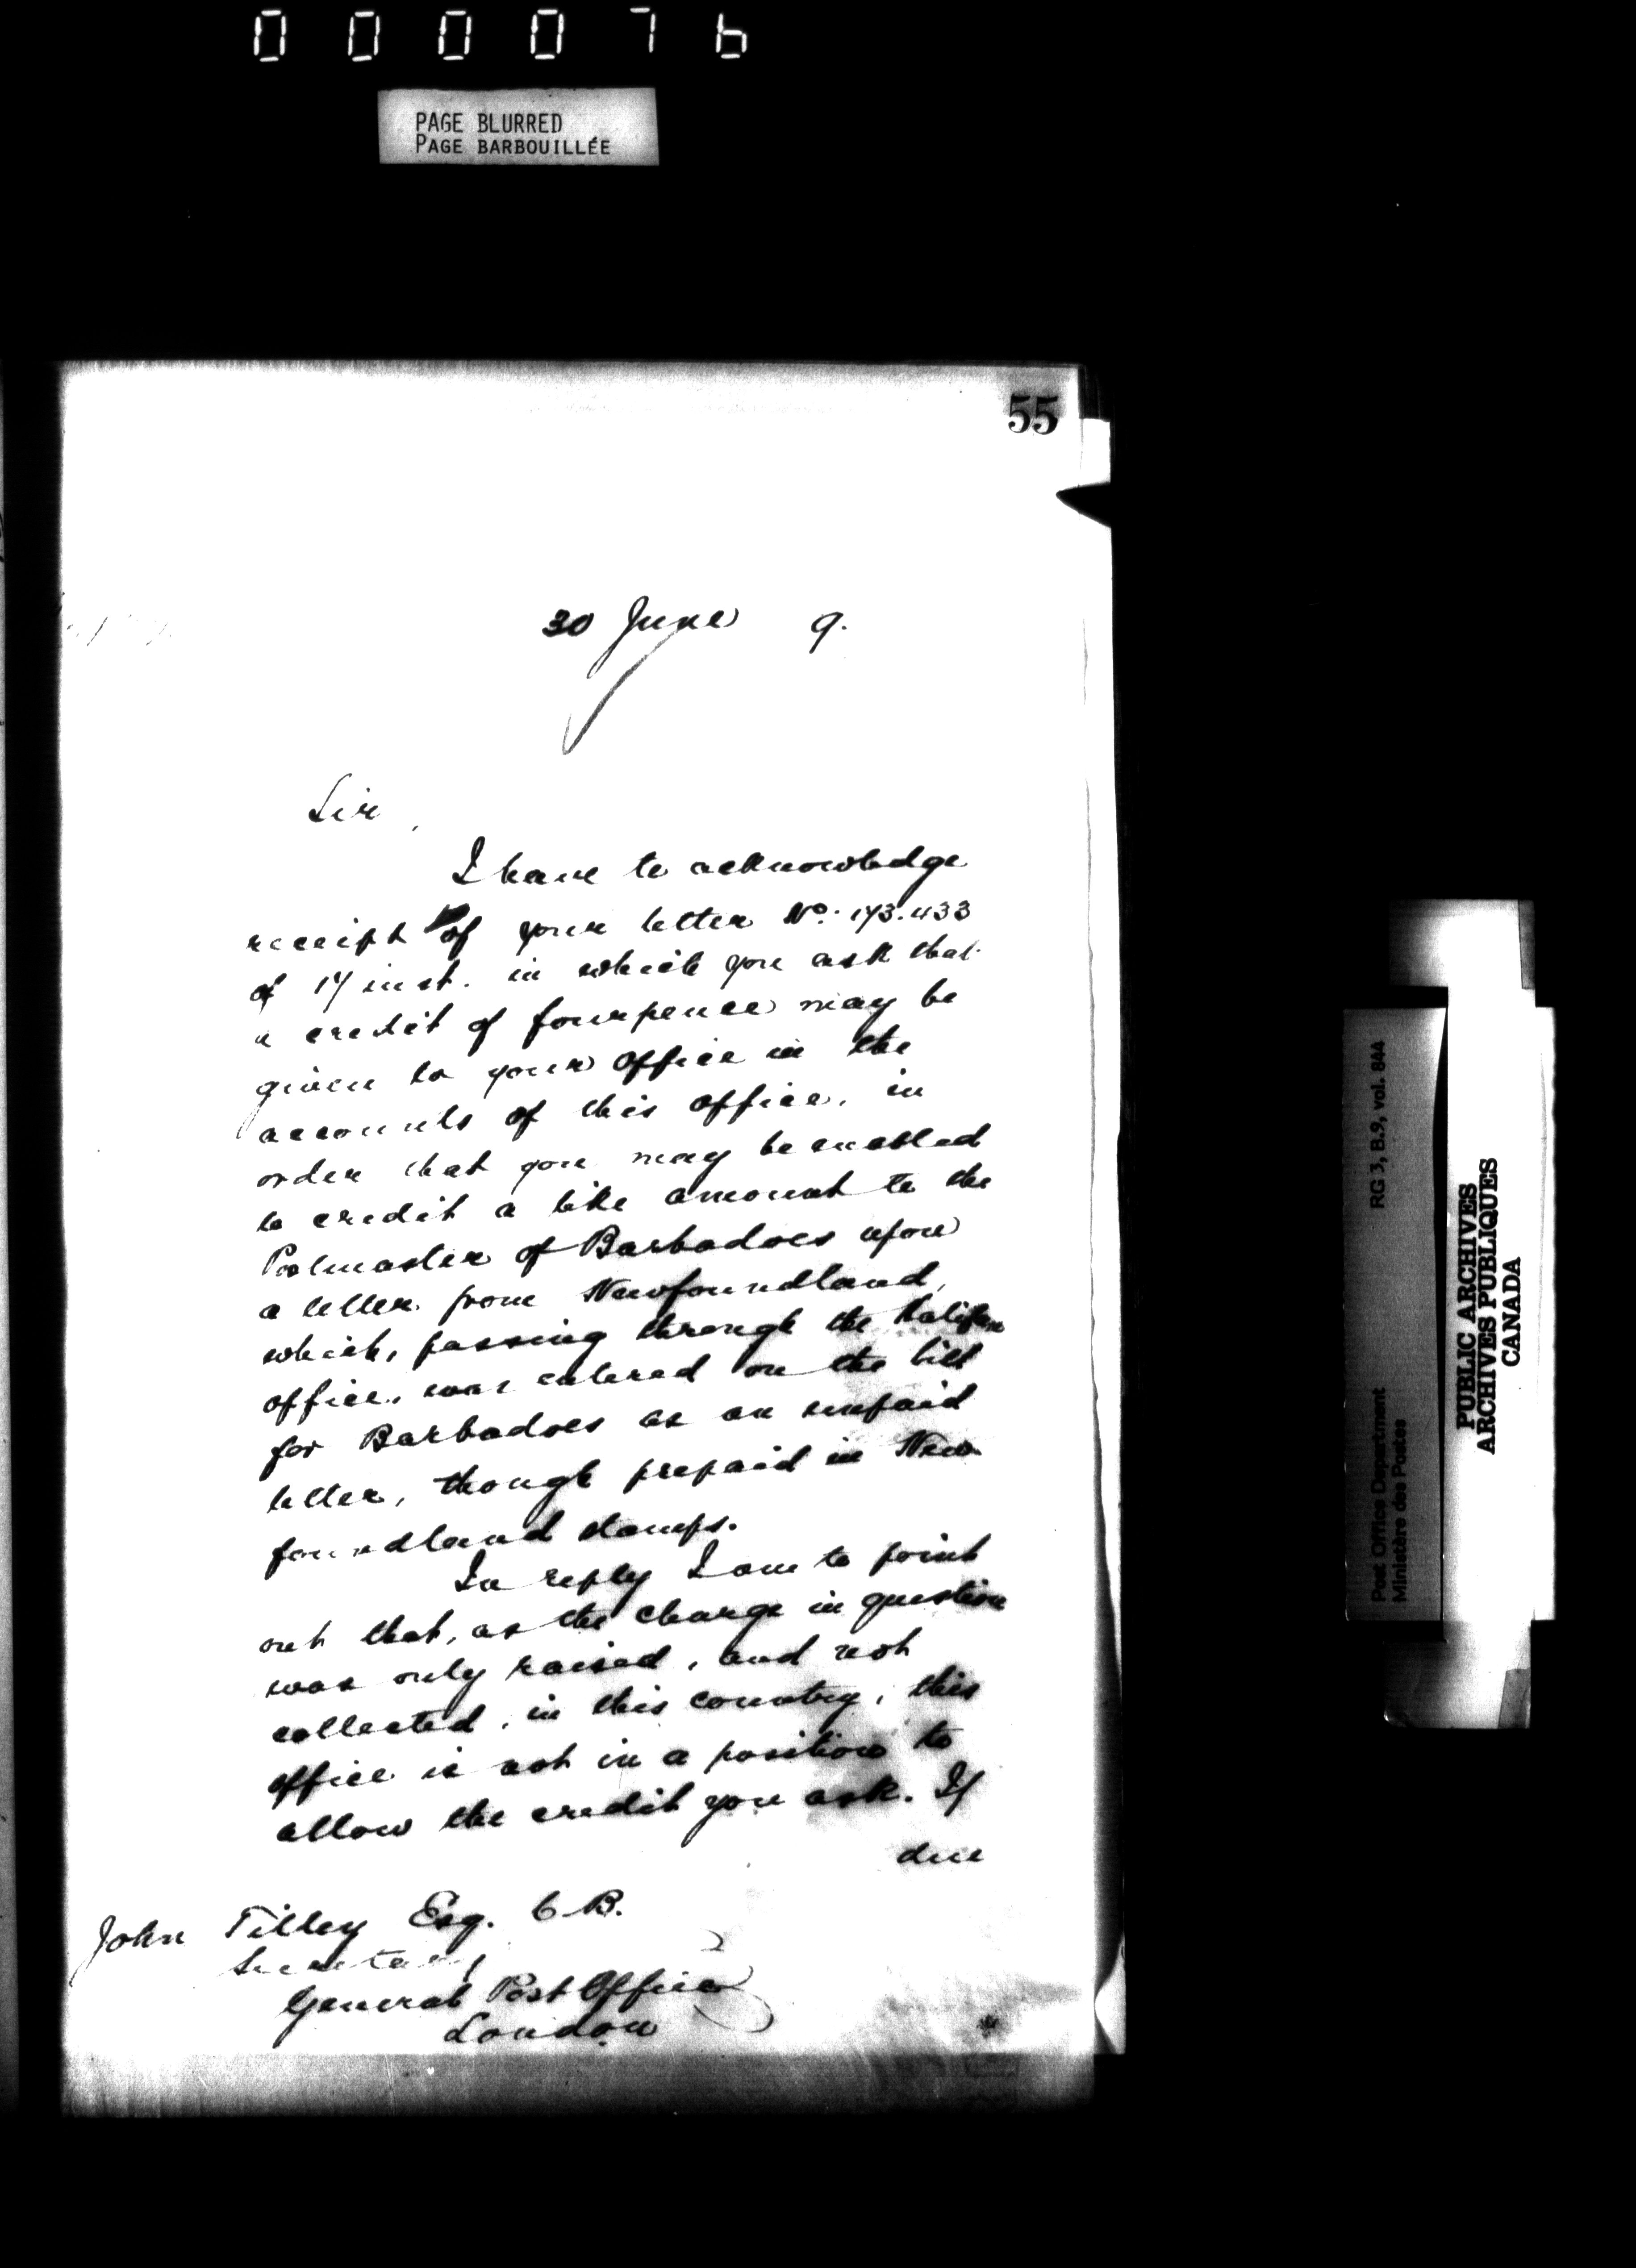 000076
PAGE BLURRED
PAGE BARBOUILLÉE
55
30 June 9.
Sir,
I have to acknowledge
receipt of your letter No. 173.433
of 17 inst. in which you ask that
a credit of fourpence may be
given to your office in the
accounts of this office, in
order that you may be enabled
to credit a like amount to the
Posmaster of Barbadoes upon
a letter from Newfoundland,
which, passing through the Halifax
office, was entered on the bill
for Barbadoes as an unpaid
letter, though prepaid in New
foundland stamps.
In reply I am to point
out that, as the charge in question
was only raised, and not
collected, in this country, this
office is not in a position to
allow the credit you ask. If
due
John Tilley Esq. C.B.
Secretary
General Post Office
London
RG 3, B.9, vol. 844
Post Office Department
Ministère des Postes
PUBLIC ARCHIVES
ARCHIVES PUBLIQUES
CANADA